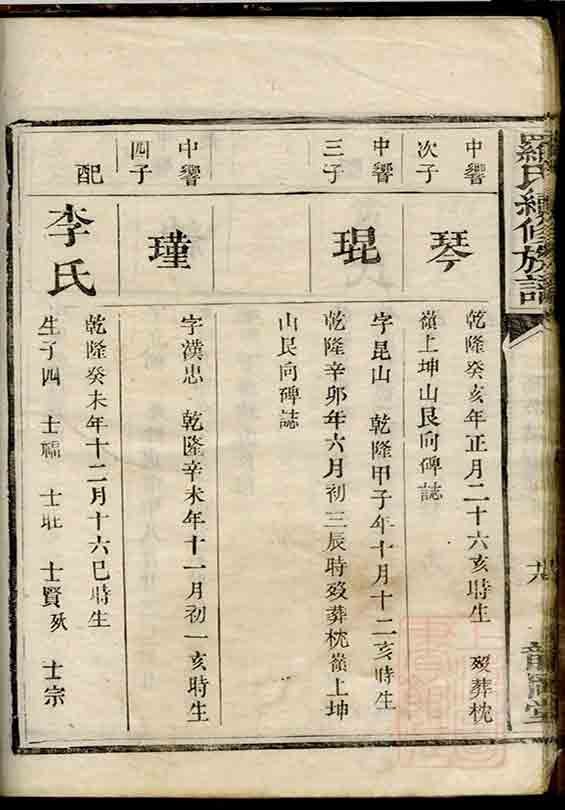 羅氏續修族譜
中響
次子
琴
乾隆癸亥年正月二十六亥時生 歿葬枕
嶺上坤山艮向碑誌
中響
三子
琨
字昆山 乾隆甲子年十月十二亥時生
乾隆辛卯年六月初三辰時歿葬枕嶺上坤
山艮向碑誌
中響
四子
瑾
字漢忠 乾隆辛未年十一月初一亥時生
配
李氏
乾隆癸未年十二月十六巳時生
生子四 士福 士旺 士賢歿 士宗